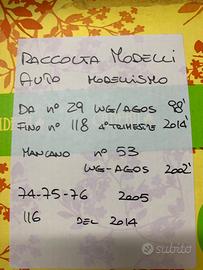 RACCOLTA MODELLI
AUTO MODELLISMO
DA n° 29 LUG/AGOS 98'
FINO n° 118 4° TRIMESTRE 2014'
MANCANO n° 53
LUG-AGOS 2002'
74-75-76 2005
116 DEL 2014
subito